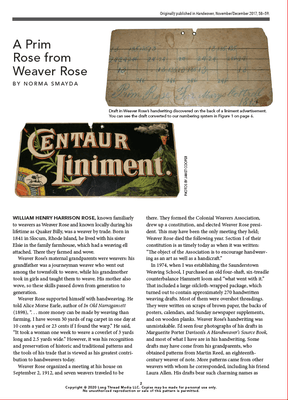 Originally published in Handwoven, November/December 2017, 58–59.
A Prim
Rose from
Weaver Rose
BY NORMA SMAYDA
Draft in Weaver Rose's handwriting discovered on the back of a liniment advertisement.
You can see the draft converted to our numbering system in Figure 1 on page 6.
CENTAUR
Liniment
WILLIAM HENRY HARRISON ROSE, known familiarly
to weavers as Weaver Rose and known locally during his
lifetime as Quaker Billy, was a weaver by trade. Born in
1841 in Slocum, Rhode Island, he lived with his sister
Elsie in the family farmhouse, which had a weaving ell
attached. There they farmed and wove.
Weaver Rose's maternal grandparents were weavers: his
grandfather was a journeyman weaver who went out
among the townsfolk to weave, while his grandmother
took in girls and taught them to weave. His mother also
wove, so these skills passed down from generation to
generation.
Weaver Rose supported himself with handweaving. He
told Alice Morse Earle, author of In Old Narragansett
(1898), ". . . more money can be made by weaving than
farming. I have woven 30 yards of rag carpet in one day at
10 cents a yard or 23 cents if I found the warp." He said,
"It took a woman one week to weave a coverlet of 3 yards
long and 2.5 yards wide." However, it was his recognition
and preservation of historic and traditional patterns and
the tools of his trade that is viewed as his greatest contri-
bution to handweavers today.
Weaver Rose organized a meeting at his house on
September 2, 1912, and seven weavers traveled to be
there. They formed the Colonial Weavers Association,
drew up a constitution, and elected Weaver Rose presi-
dent. This may have been the only meeting they held;
Weaver Rose died the following year. Section 1 of their
constitution is as timely today as when it was written:
"The object of the Association is to encourage handweav-
ing as an art as well as a handicraft."
In 1974, when I was establishing the Saunderstown
Weaving School, I purchased an old four-shaft, six-treadle
counterbalance Hammett loom and "what went with it."
That included a large oilcloth-wrapped package, which
turned out to contain approximately 270 handwritten
weaving drafts. Most of them were overshot threadings.
They were written on scraps of brown paper, the backs of
posters, calendars, and Sunday newspaper supplements,
and on wooden planks. Weaver Rose's handwriting was
unmistakable. I'd seen four photographs of his drafts in
Marguerite Porter Davison's A Handweaver's Source Book,
and most of what I have are in his handwriting. Some
drafts may have come from his grandparents, who
obtained patterns from Martin Reed, an eighteenth-
century weaver of note. More patterns came from other
weavers with whom he corresponded, including his friend
Laura Allen. His drafts bear such charming names as
Copyright © 2020 Long Thread Media LLC. Copies may be made for personal use only.
No unauthorized reproduction or sale of this pattern is permitted.